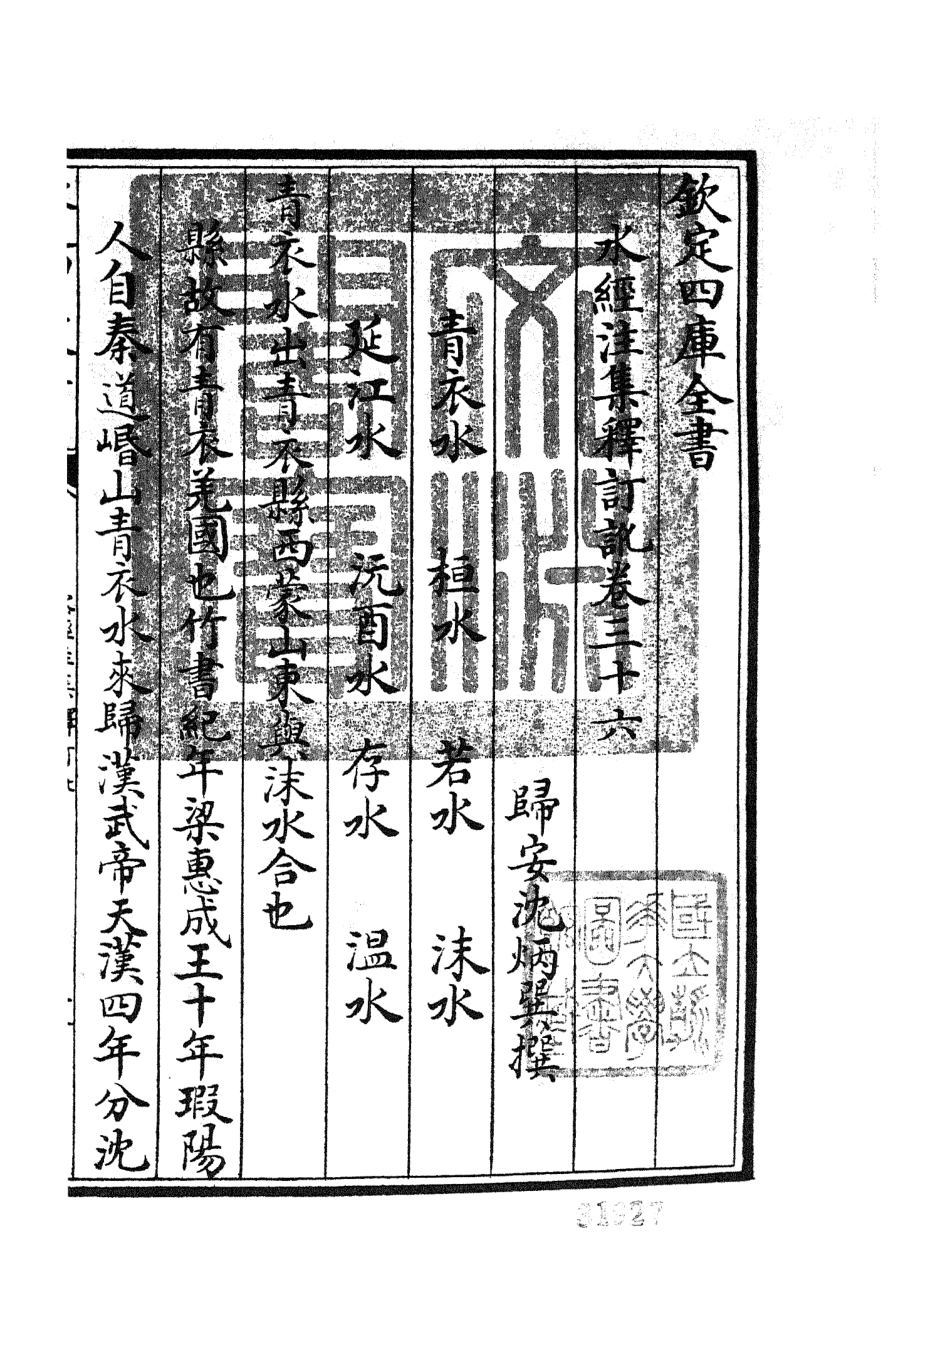 欽定四庫全書
水經注集釋訂訛卷三十六
歸安沈炳巽撰
青衣水 桓水 若水 沫水
延江水 沅酉水 存水 温水
青衣水出青衣縣西蒙山東與沫水合也
縣故有青衣羌國也竹書紀年梁惠成王十年瑕陽
人自秦道㟭山青衣水來歸漢武帝天漢四年分沈
文淵閣寶
國立浙江大學圖書
31927